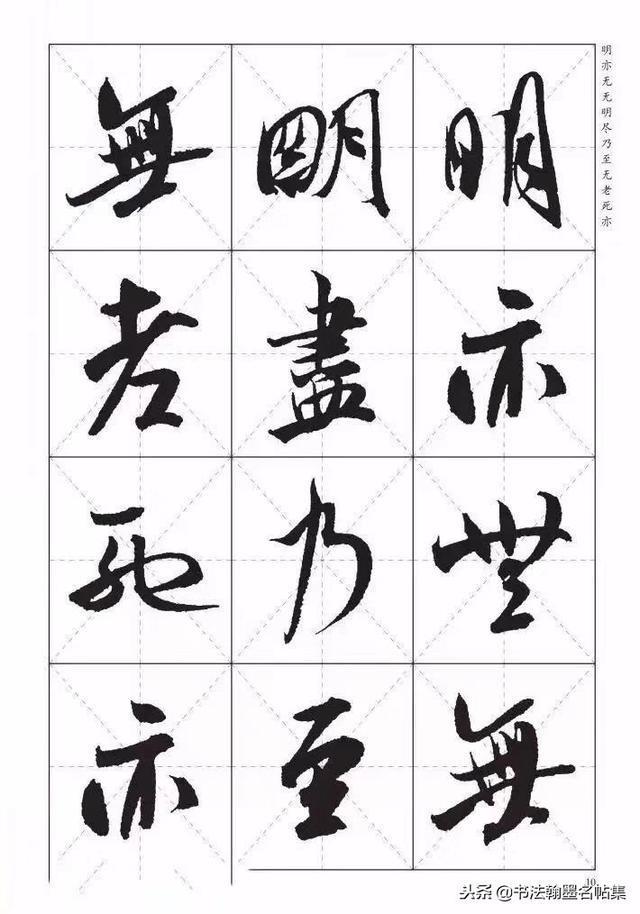 明亦无无明尽乃至无老死亦
明亦無無
明盡乃至
無老死亦
10
头条@书法翰墨名帖集